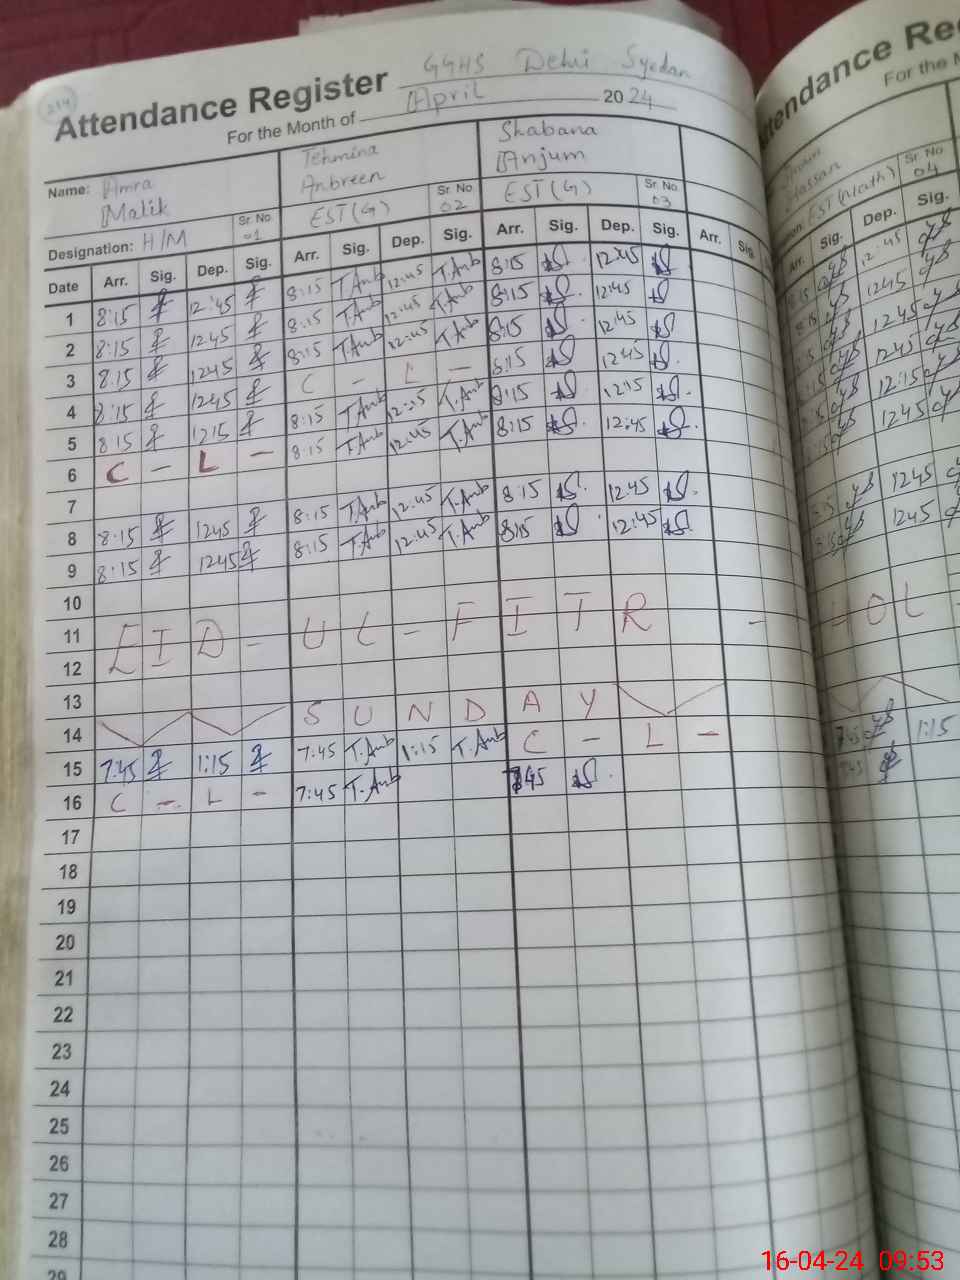 234
Attendance Register GGHS Delhi Syedan
For the Month of April 2024
Name: Amra Malik Tehmina Anbreen Shabana Anjum
Designation: H/M Sr. No. 01 EST(G) Sr. No. 02 EST(G) Sr. No. 03
Date Arr. Sig. Dep. Sig. Arr. Sig. Dep. Sig. Arr. Sig. Dep. Sig. Arr. Sig.
1 8:15 12:45 8:15 T.Anb 12:45 T.Anb 8:15 12:45
2 8:15 1245 8:15 T.Anb 12:45 T.Anb 8:15 12:45
3 8:15 1245 8:15 T.Anb 12:45 T.Anb 8:15 12:45
4 8:15 1245 C - L - 8:15 1245
5 8:15 1215 8:15 T.Anb T.Anb 8:15 12:15
6 C - L - 8:15 T.Anb 12:45 T.Anb 8:15 12:45
7
8 8:15 1245 8:15 T.Anb 12:45 T.Anb 8:15 12:45
9 8:15 1245 8:15 T.Anb 12:45 T.Anb 8:15 12:45
10
11 EID - UL - FITR
12
13
14 SUNDAY
15 7:45 1:15 7:45 T.Anb 1:15 T.Anb C - L -
16 C - L - 7:45 T.Anb 7:45
17
18
19
20
21
22
23
24
25
26
27
28
29
Attendance Re
For the M
Hassan
EST(Math) Sr. No. 04
Arr. Sig. Dep. Sig.
12:45
1245
1245
1245
12:15
1245
1245
1245
- HOL -
7:45 1:15
7:45
16-04-24 09:53